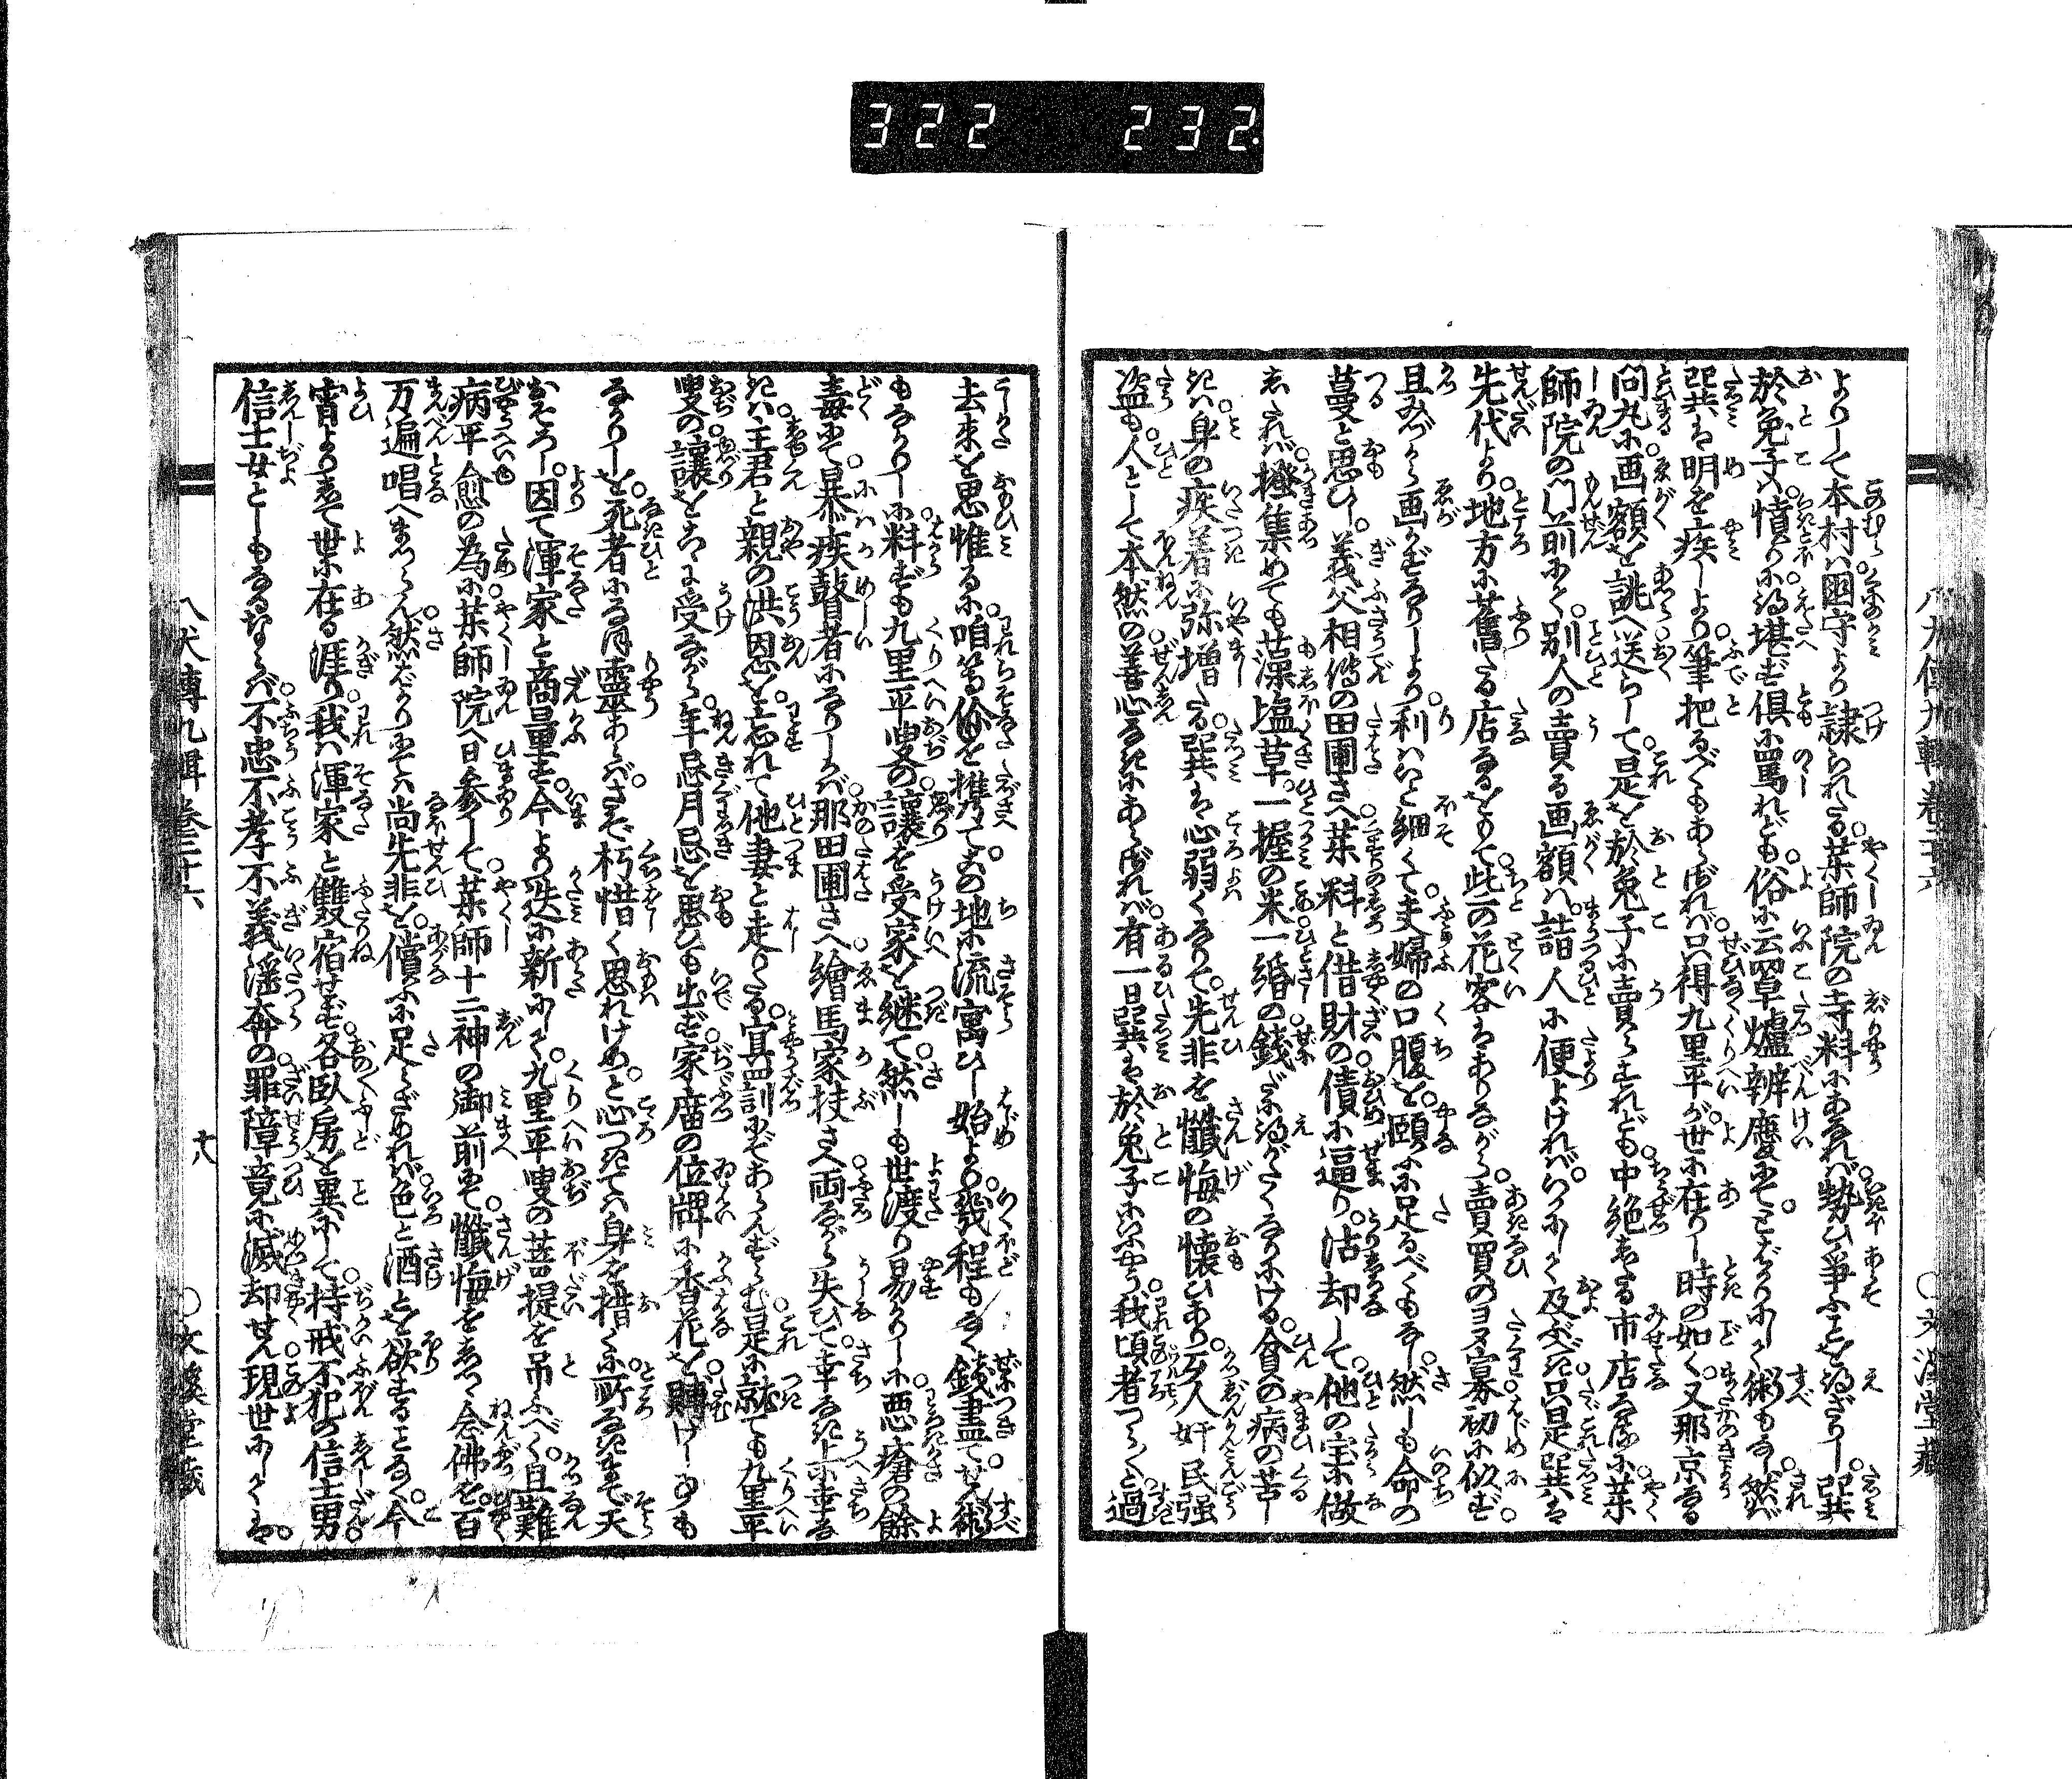 322 232
よりして本村ハ國守より隷られたる薬師院の寺料にあなれバ勢ひ爭ふことを得ざりし巽
於兎子ハ憤りに得堪ず倶に罵れども俗に云罩爐辨慶にてそばかりにして術もなし然バ
巽ハ明を疾しより筆把るべくもあらざれバ只得九里平が世に在りし時の如く又那京なる
問丸に画額を誂へ送らして是を於兎子に賣らすれども中絶したる市店なるに薬
師院の門前にて別人の賣る画額ハ詣人に便よけれバかにかくに及ぶべき只是巽ハ
先代より地方に舊たる店なるをもて些の花客ハありながら賣買のヨヌ寡初に似ず
且みづから画かずなりしより利ハいと細くて夫婦の口腹を頤に足るべくもなし然しも命の
蔓と思ひし義父相傳の田圃さへ薬料と借財の債に逼り沽却して他の宝に做
しかバ搔集めても藻塩草一握の米一緡の錢だに得がたくなりにける貧の病の苦し
きハ身の疾著に弥増たる巽ハ心弱くなりて先非を懺悔の懐ひあり云云人奸民强
盜も人として本然の善心なきにあらざれバ有一日巽ハ於兎子にいふやう我頃者つくつくと過
去來を思惟るに咱等儕を携てこの地に流寓ひし始より幾程もなく錢盡てせん術
もなかりしに料ずも九里平叟の讓を受家を継て然しも世渡り易かりしに悪瘡の餘
毒にて暴疾瞽者になりしかバ那田圃さへ繪馬家扶さへ両ながら失ひて幸なき上に幸な
きハ主君と親の洪恩を忘れて他妻と走りたる冥罰にぞあらんずらむ是に就ても九里平
叟の讓をうけ受ながら年忌月忌を思ひも出ず家廟の位牌に香花を賻けし事も
なかりしを死者になほ靈あらバさぞ朽惜く思れけめと心つきてハ身を措くに所なきまで天
おそろし因て渾家と商量す今より迭に新にして九里平叟の菩提を吊ふべく且難
病平愈の為に薬師院へ日参して薬師十二神の御前にて懺悔をしつゝ念佛を百
万遍唱へまつらん然ばかりにてハ尚先非を償ふに足らざめれバ色と酒とを欲することなく今
宵よりして世に在る涯り我ハ渾家と雙宿せず各臥房を異にして持戒不犯の信士男
信士女としもなるならバ不忠不孝不義淫奔の罪障竟に滅却せん現世にしてハ
八犬傳九輯卷三十六
十八
○文溪堂藏